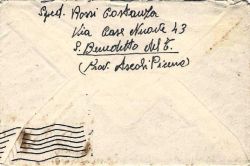 Sped. Rossi Costanza
Via Case Nuove 43
S. Benedetto del T.
(Prov. Ascoli Piceno)